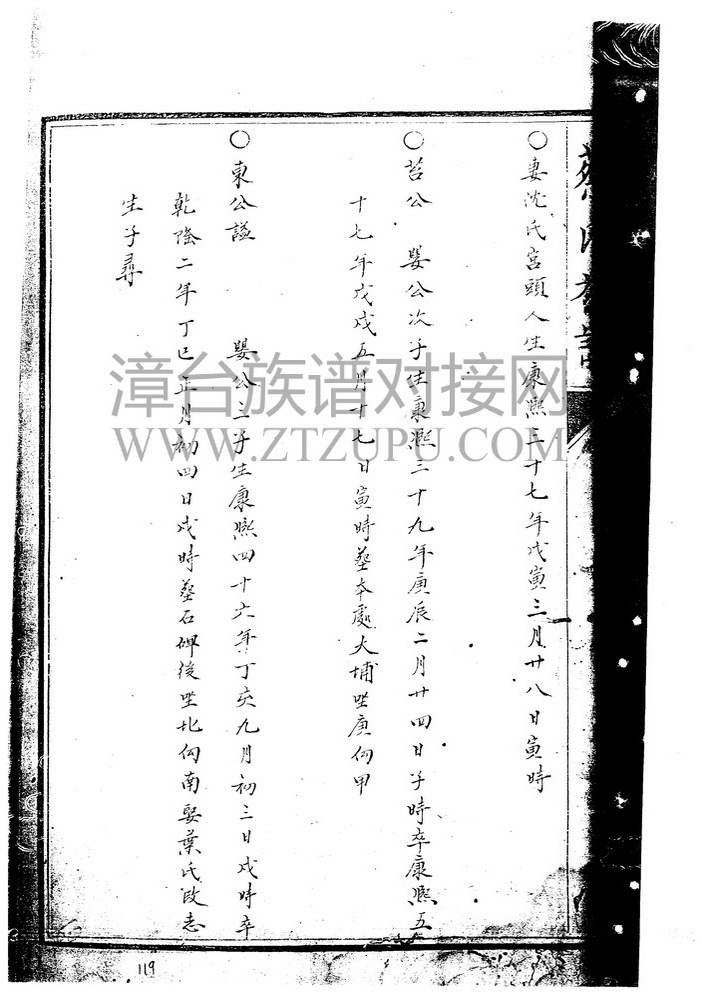 ○妻沈氏宮頭人生康熙三十七年戊寅三月廿八日寅時
○苔公　嬰公次子生康熙三十九年庚辰二月廿四日子時卒康熙五
十七年戊戌五月十七日寅時葬本處大埔坐庚向甲
○東公謚　嬰公三子生康熙四十六年丁亥九月初三日戌時卒
乾隆二年丁巳年月初四日戌時葬石碑後坐北向南娶葉氏改志
生子尋
漳台族谱对接网
WWW.ZTZUPU.COM
119